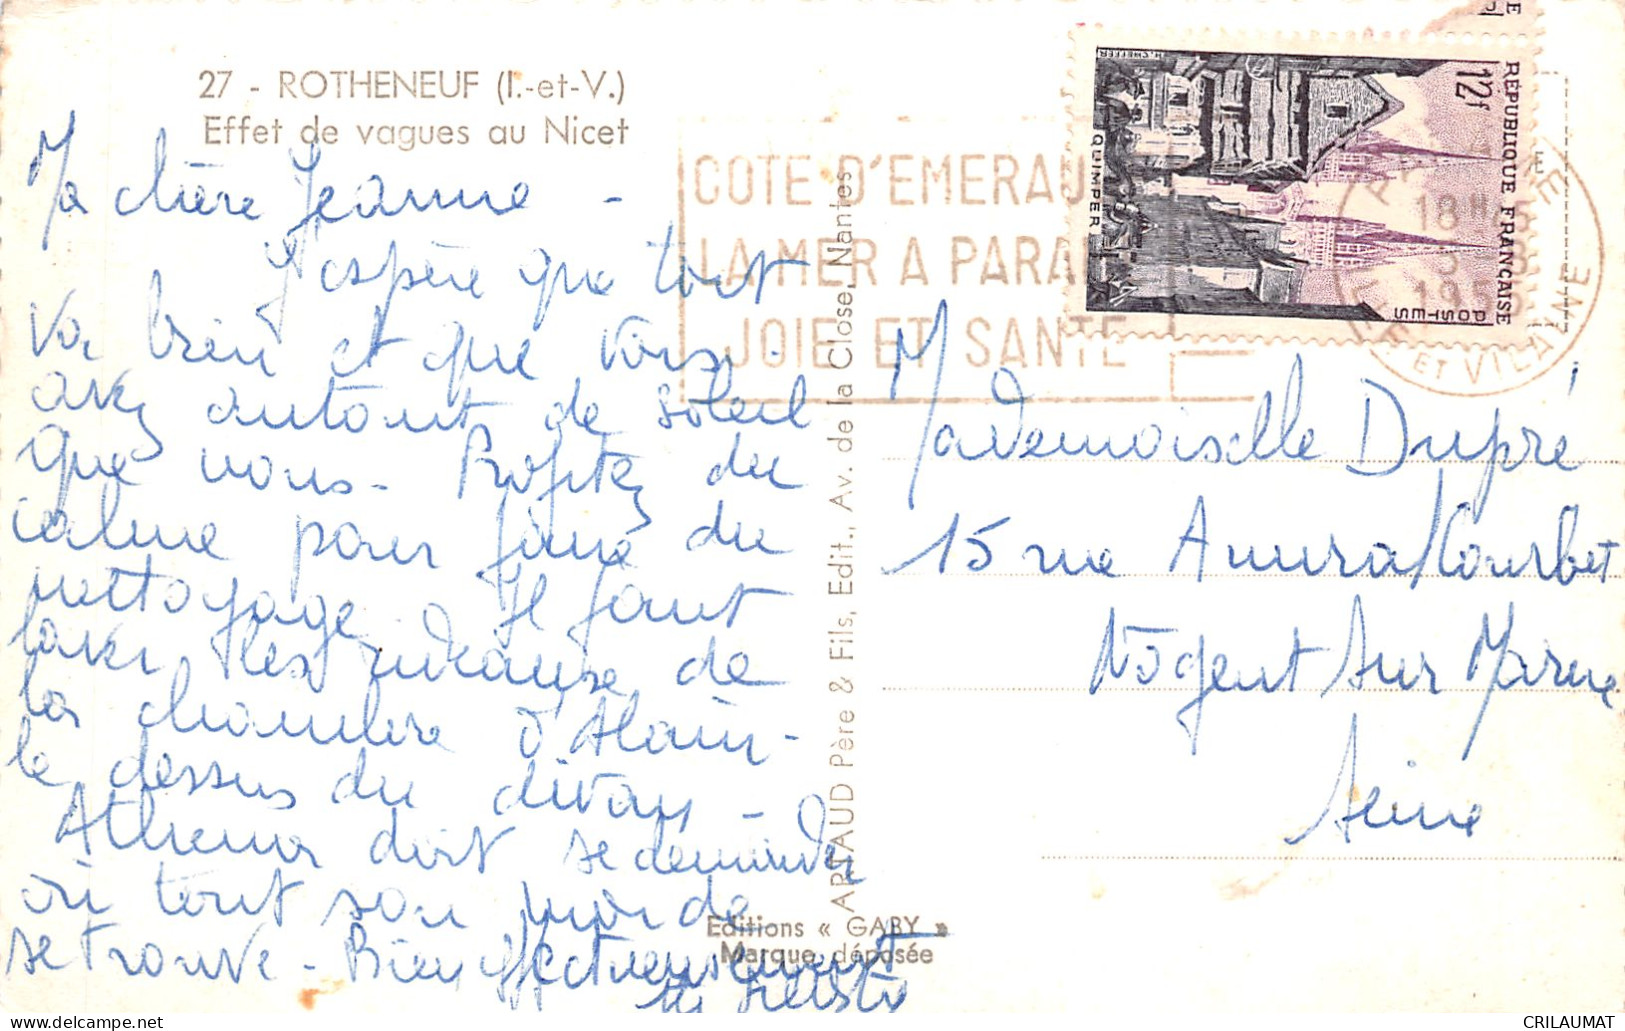 27 - ROTHENEUF (I.-et-V.)
Effet de vagues au Nicet
Ma chère Jeanne -
J'espère que tout
va bien et que vous
avez autant de soleil
que nous - Profitez du
calme pour faire du
nettoyage. Il faut
laver les rideaux de
la chambre d'Alain -
le dessus du divan -
Athena doit se demander
où tout son monde
se trouve - Bien affectueusement
ARTAUD Père & Fils, Edit., Av. de la Close, Nantes
Editions « GABY »
Marque déposée
COTE D'EMERAU
LA MER A PARA
JOIE ET SANTE
RÉPUBLIQUE FRANÇAISE
POSTES
12f
QUIMPER
H. CHEFFER
18 H 45
3 - 8
195
ET VILAINE
Mademoiselle Dupré
15 rue Amiral Courbet
Nogent sur Marne
Seine
CRILAUMAT